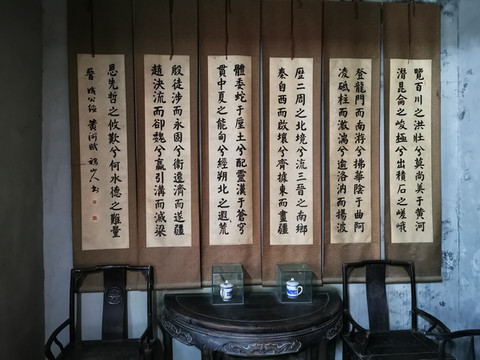 覽百川之洪壯兮莫尚美于黃河
潛昆侖之峻極兮出積石之嵯峨
登龍門而南游兮拂華陰于曲阿
凌砥柱而激湍兮逾洛汭而揚波
歷二周之北境兮流三晉之南鄉
秦自西而啟壤兮齊據東而畫疆
體委蛇于厚土兮配靈漢于蒼穹
貫中夏之畿甸兮經朔北之遐荒
殷徒涉而永固兮衛遷濟而遂疆
趙決流而卻魏兮嬴引溝而滅梁
思先哲之攸歎兮何水德之難量
晉 成公綏 黃河賦 山人書